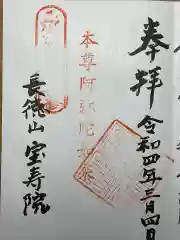 奉拝
令和四年二月四日
本尊阿弥陀如来
長徳山
宝寿院